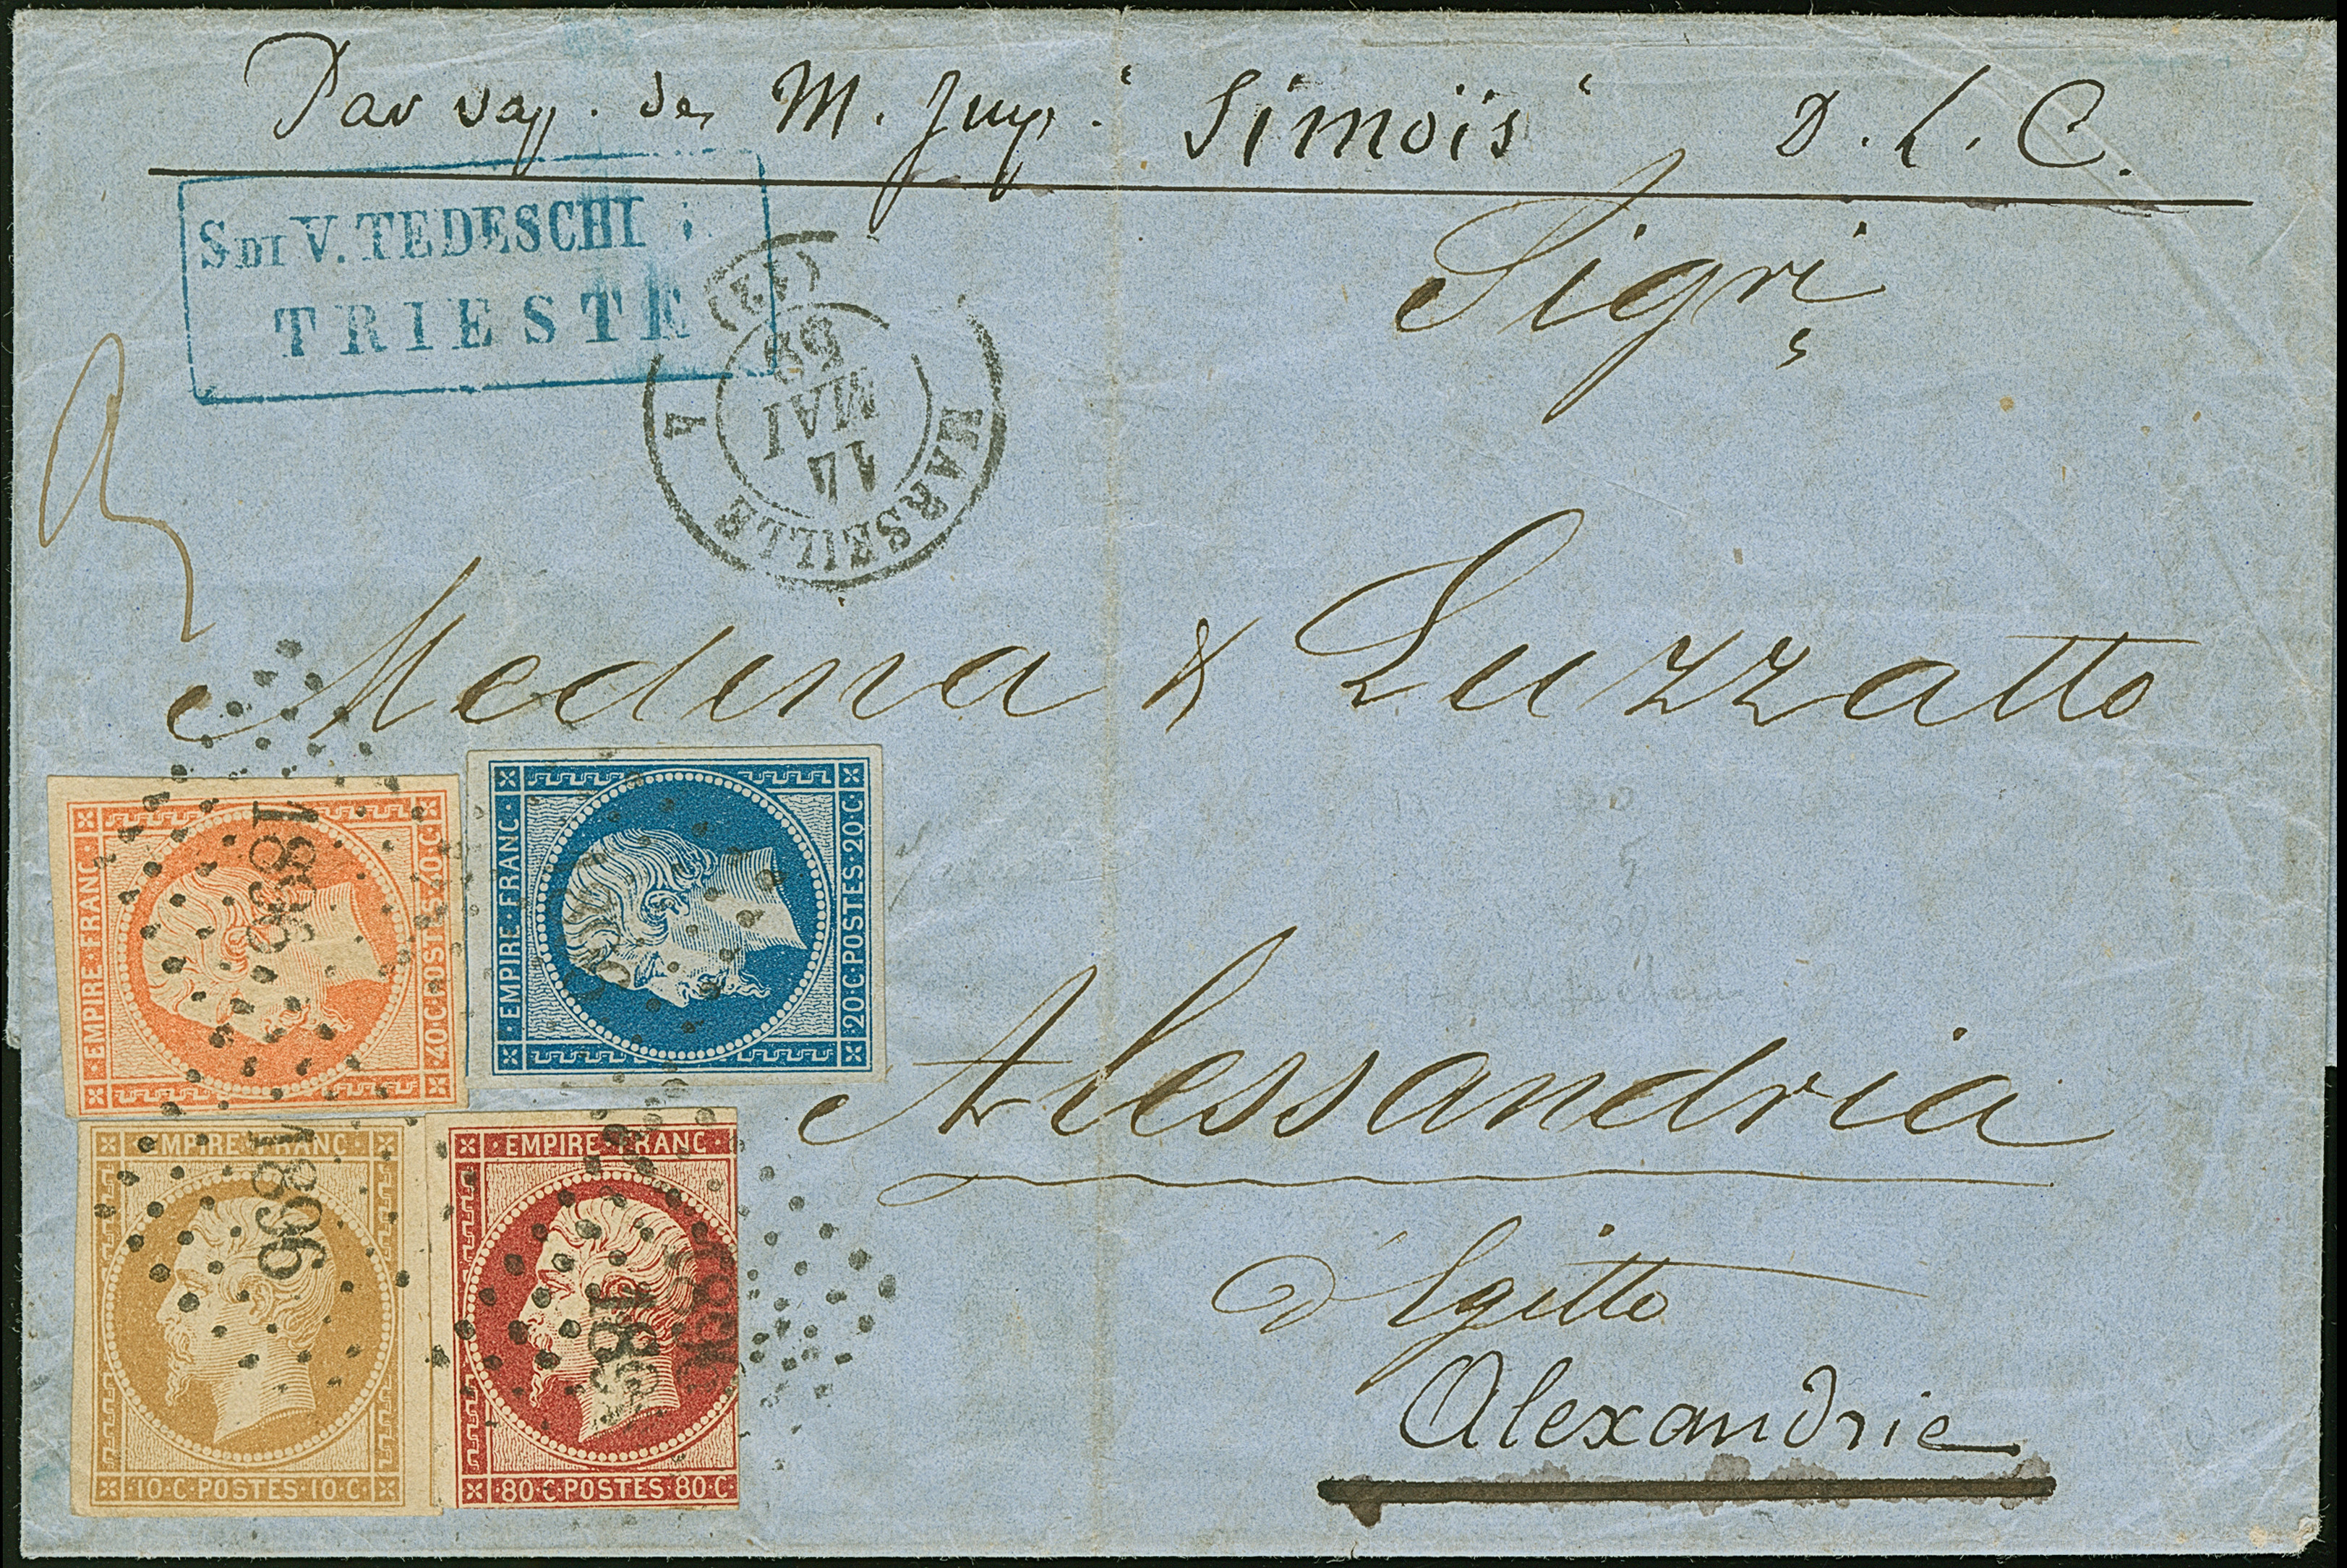 Par vap. des M. Imp. "Simoïs" D. L. C.
S DI V. TEDESCHI
TRIESTE
MARSEILLE
14
MAI
59
(12)
Sigri
Medina & Luzzatto
Alessandria
d'Egitto
Alexandrie
EMPIRE·FRANC·
40·C·POSTES·40·C·
1896
EMPIRE·FRANC·
20·C·POSTES·20·C·
EMPIRE·FRANC·
10·C·POSTES·10·C·
1896
EMPIRE·FRANC·
80·C·POSTES·80·C·